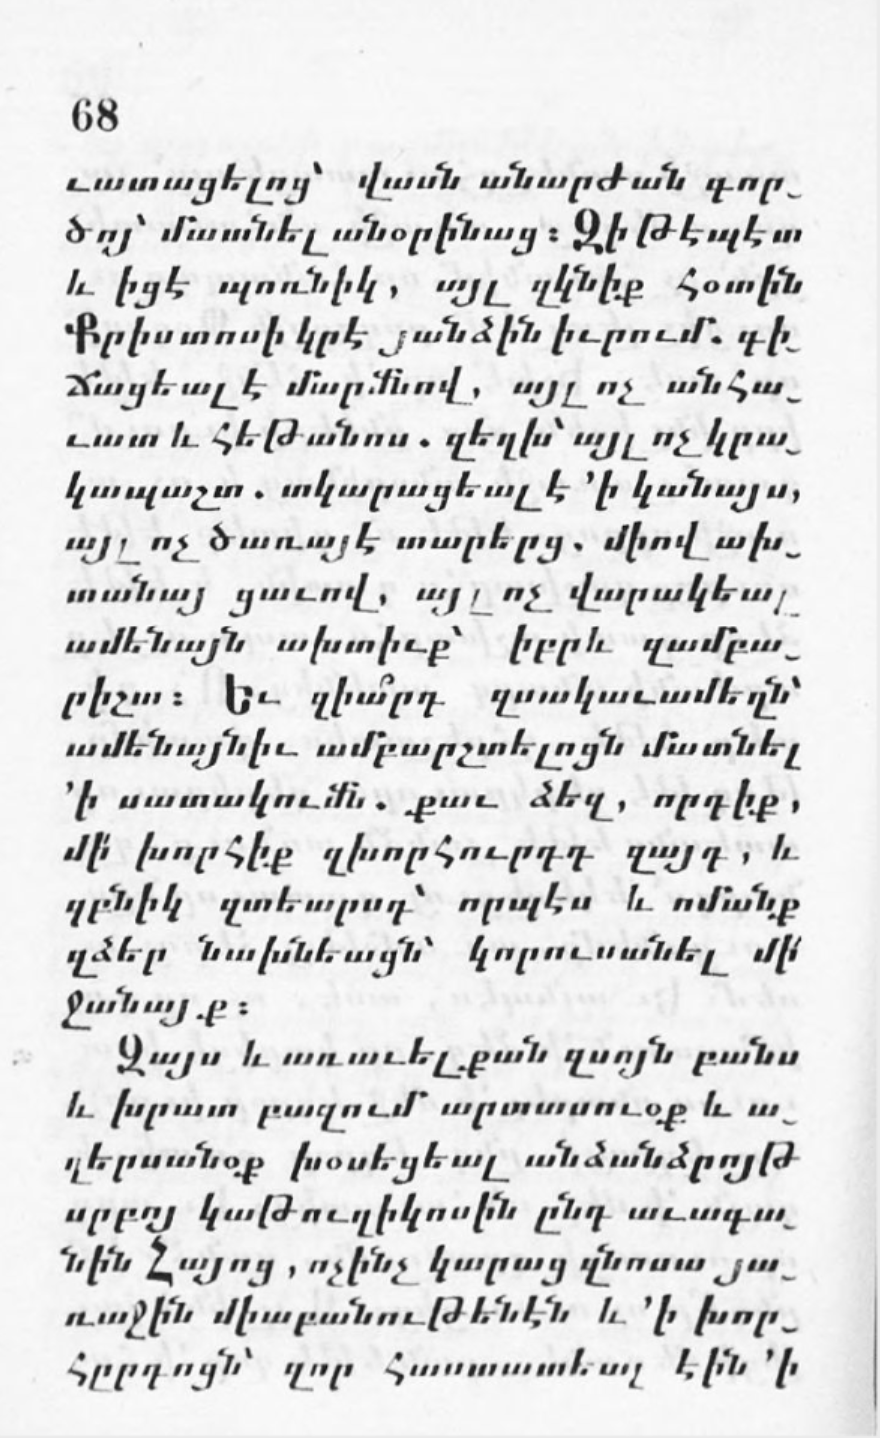 68
ւատացելոց՝ վասն անարժան գոր֊
ծոյ՝ մատնել անօրինաց։ Զի թէպէտ
և իցէ պոռնիկ, այլ զկնիք հօտին
Քրիստոսի կրէ յանձին իւրում. գի֊
ճացեալ է մարմնով, այլ ոչ անհա֊
ւատ և հեթանոս. զեղխ՝ այլ ոչ կրա֊
կապաշտ. տկարացեալ է ՚ի կանայս,
այլ ոչ ծառայէ տարերց. միով ախ֊
տանայ ցաւով, այլ ոչ վարակեալ
ամենայն ախտիւք՝ իբրև զամբա֊
րիշտ։ Եւ զիա՞րդ զսակաւամեղն՝
ամենայնիւ ամբարշտելոցն մատնել
՚ի սատակումն. քաւ ձեզ, որդիք,
մի՛ խորհիք զխորհուրդդ զայդ, և
զբնիկ զտեարսդ՝ որպէս և ոմանք
զձեր նախնեացն՝ կորուսանել մի՛
ջանայք։
Զայս և առաւել քան զսոյն բանս
և խրատ բազում արտասուօք և ա֊
ղերսանօք խօսեցեալ անձանձրոյթ
սրբոյ կաթուղիկոսին ընդ աւագա֊
նին Հայոց, ոչինչ կարաց զնոսա յա֊
ռաջին միաբանութենէն և ՚ի խոր֊
հըրդոցն՝ զոր հաստատեալ էին ՚ի